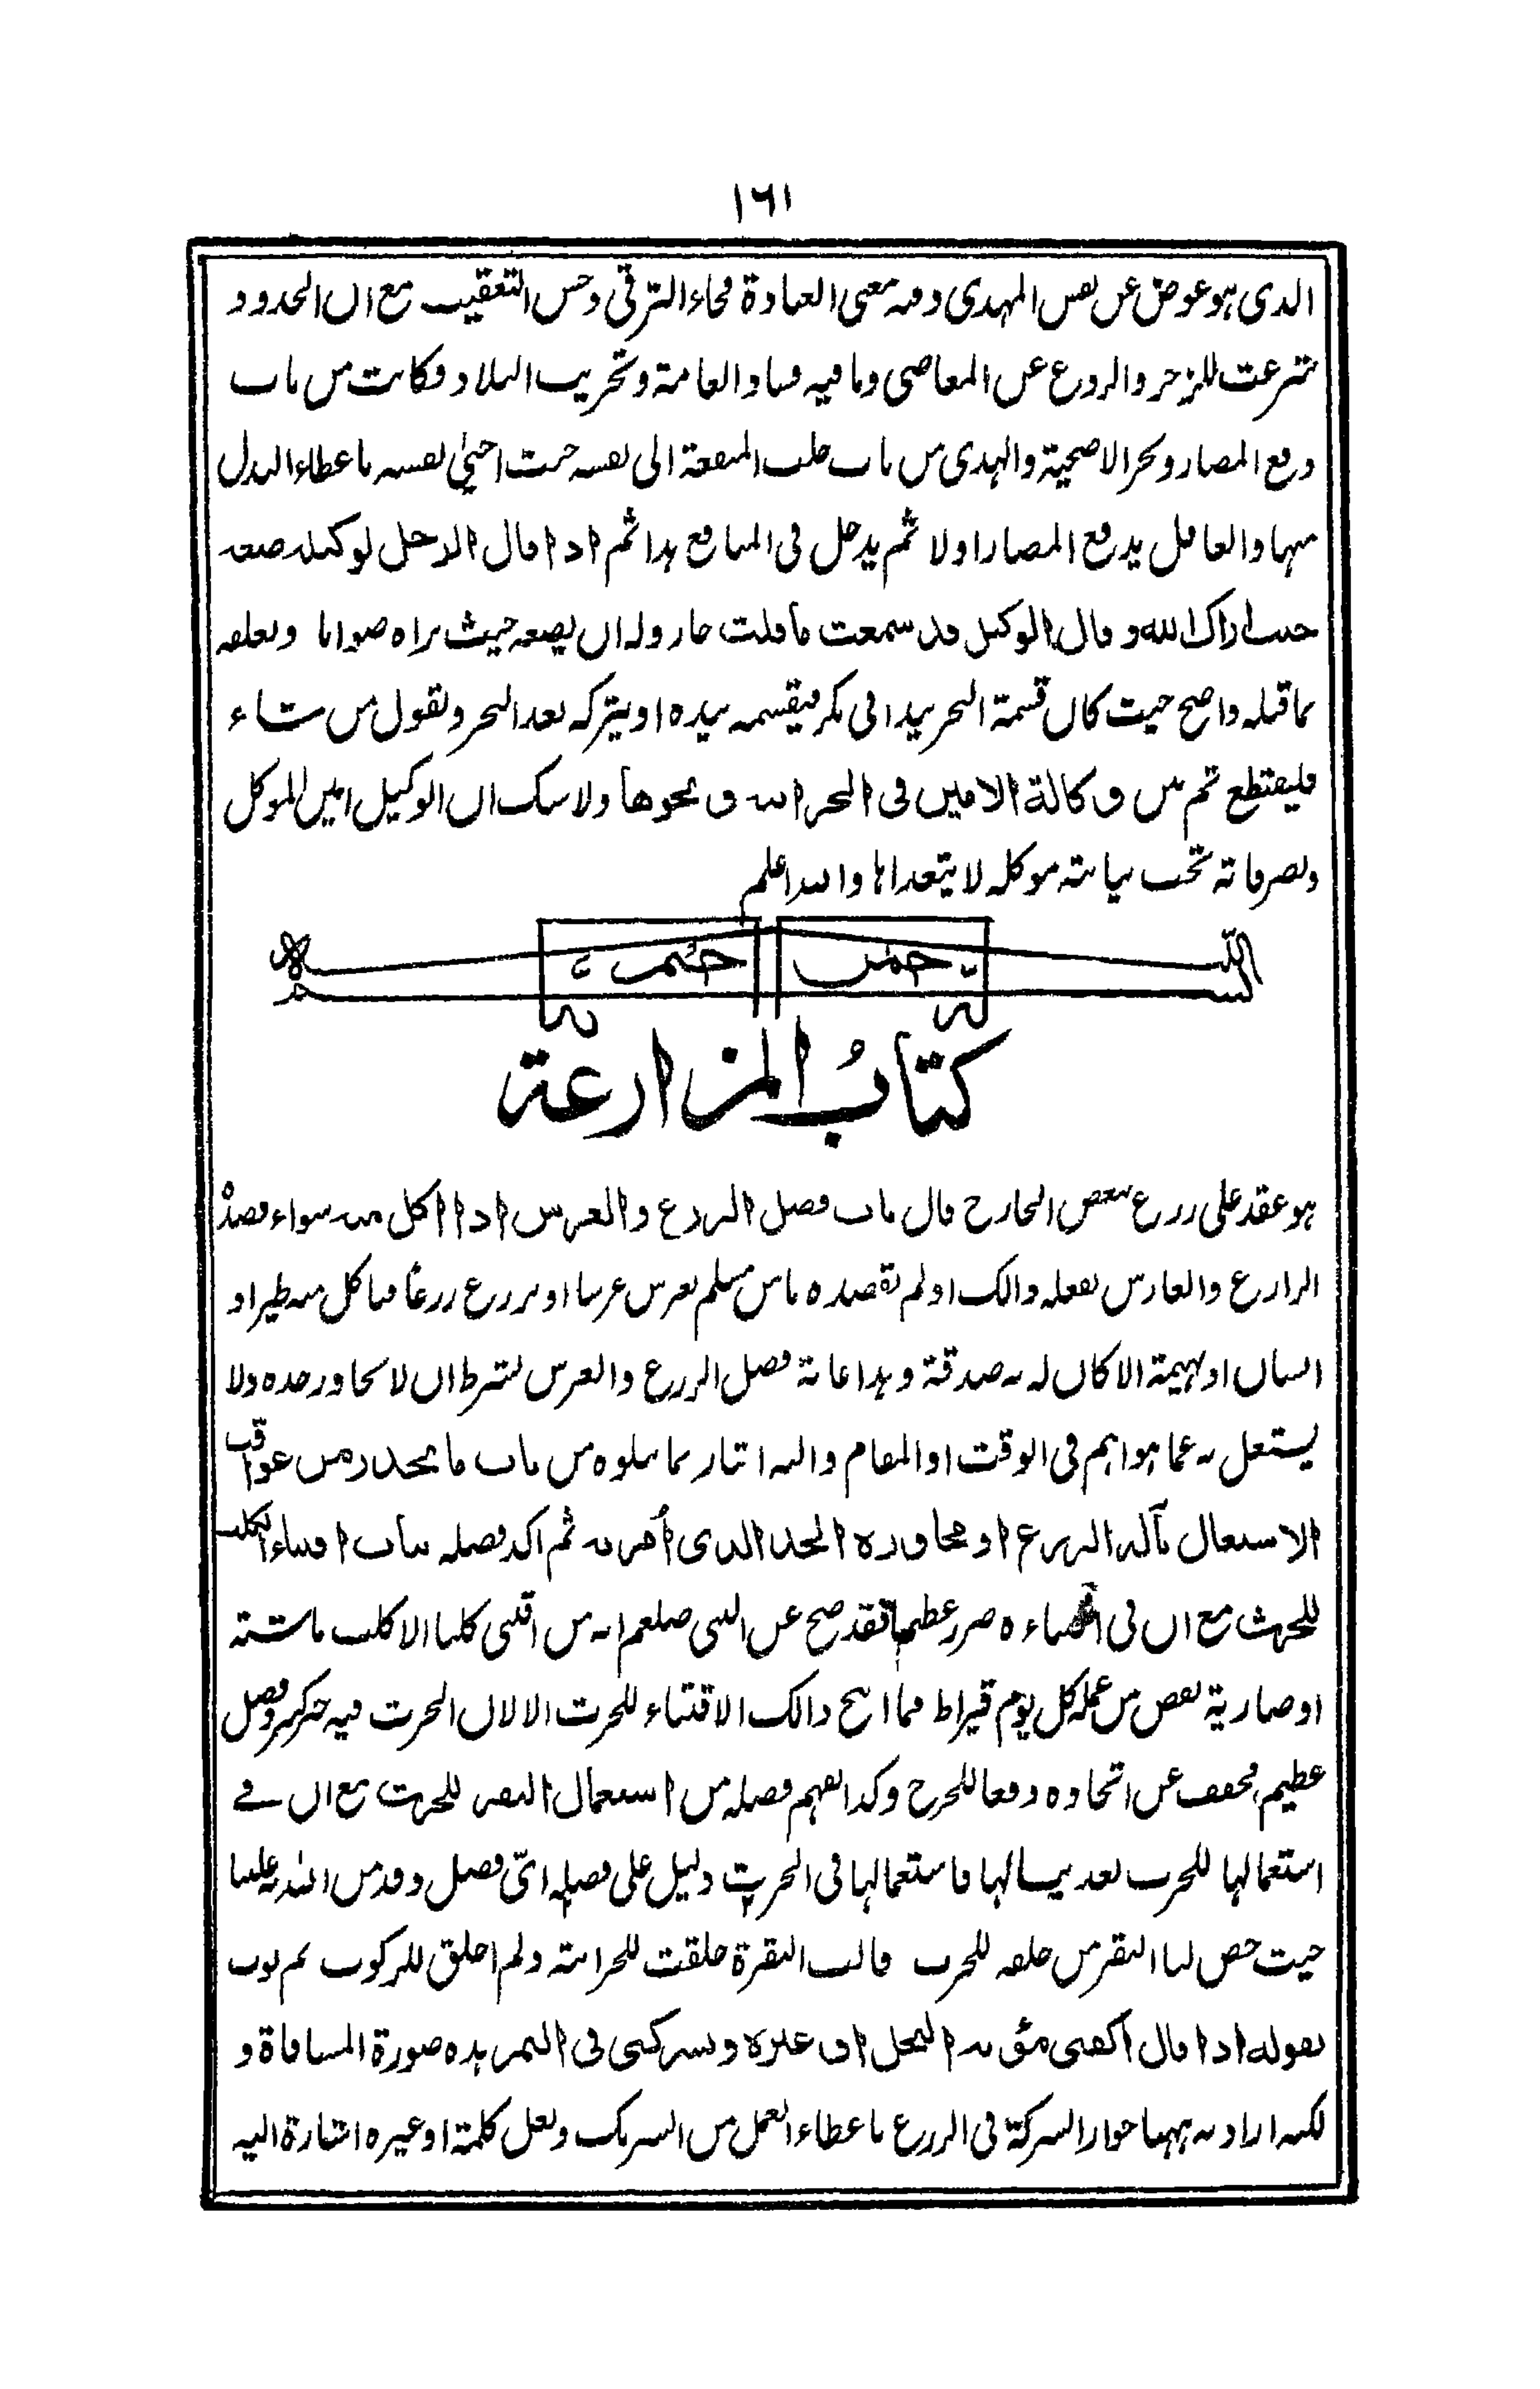 ١٦١
الذى هو عوض عن نفس المهدى وفيه معنى العبادة فجاء الترقى وحسن التعقيب مع ان الحدود
شرعت للزجر والردع عن المعاصى وما فيه فساد العامة وتخريب البلاد فكانت من باب
دفع المضار ونحر الاضحية والهدى من باب جلب المنفعة الى نفسه حيث احيى نفسه باعطاء البدل
منها والعاقل يدفع المضار اولا ثم يدخل فى المنافع هذا ثم اذا قال الرجل لوكيله ضعه
حيث اراك الله وقال الوكيل قد سمعت ما قلت جاز وله ان يضعه حيث يراه صوابا وتعلقه
بما قبله واضح حيث كان قسمة النحر بيد ابى بكر فيقسمه بيده او يتركه بعد النحر ويقول من شاء
فليقتطع ثم من وكالة الامين فى النحر ونحوها ولا شك ان الوكيل امين الموكل
وتصرفاته تحت نيابة موكله لا يتعداها والله اعلم
بسم الله الرحمن الرحيم
كتاب المزارعة
هو عقد على زرع ببعض الخارج قال باب فضل الزرع والغرس اذا اكل منه سواء قصد
الزارع والغارس بفعله ذالك او لم يقصده ما من مسلم يغرس غرسا او يزرع زرعا فياكل منه طير او
انسان او بهيمة الا كان له به صدقة وهذا غاية فضل الزرع والغرس بشرط ان لا يجاوز حده ولا
يشتغل به عما هو اهم فى الوقت او المقام واليه اشار بما يتلوه من باب ما يحذر من عواقب
الاشتغال بآلة الزرع او مجاوزة الحد الذى أمر به ثم اكد فضله بباب اقتناء الكلب
للحرث مع ان فى اقتناءه ضرر عظيما فقد صح عن النبى صلعم انه من اقتنى كلبا الا كلب ماشية
او ضارية نقص من عمله كل يوم قيراط فما ابيح ذالك الاقتناء للحرث الا لان الحرث فيه خير كثير وفضل
عظيم فخفف عن اتخاذه دفعا للحرج وكذا يفهم فضله من استعمال البقر للحرث مع ان فى
استعمالها للحرث بعد فاستعمالها فى الحرث دليل على فضله اىّ فضل وقد من الله علينا
حيث خص لنا البقر من خلقه للحرث قالت البقرة خلقت للحراثة ولم اخلق للركوب ثم بوب
بقوله اذا قال اكفنى مؤنة النخل او غيره وتشركنى فى الثمر هذه صورة المساقاة و
لكنه اراد به ههنا جواز الشركة فى الزرع باعطاء العمل من الشريك ولعل كلمة او غيره اشارة اليه